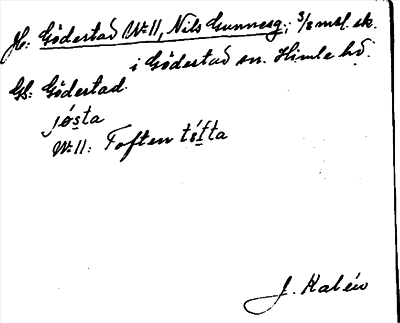 Jb: Gödestad No 11, Nils Gunnesg; 3/8 mtl. sk.
i Gödestad sn. Himle hd.
Gb: Gödestad.
jösta
No 11: Toften tófta
J. Kalén